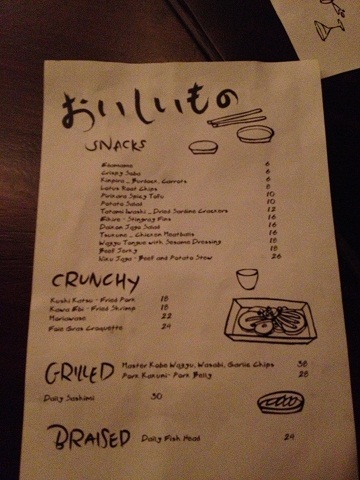 おいしいもの
SNACKS
Edamame 6
Crispy Soba 6
Kinpira _ Burdock, Carrots 6
Lotus Root Chips 8
Pirikara Spicy Tofu 10
Potato Salad 10
Tatami Iwashi _ Dried Sardine Crackers 12
Eihire - Stingray Fins 16
Daikon Jaga Salad 16
Tsukune _ Chicken Meatballs 16
Wagyu Tongue with Sesame Dressing 18
Beef Jerky 18
Niku Jaga - Beef and Potato Stew 26
CRUNCHY
Kushi Katsu - Fried Pork 18
Kawa Ebi - Fried Shrimp 18
Moriawase 22
Foie Gras Croquette 24
GRILLED
Master Kobe Wagyu, Wasabi, Garlic Chips 58
Pork Kakuni - Pork Belly 28
Daily Sashimi 30
BRAISED
Daily Fish Head 24